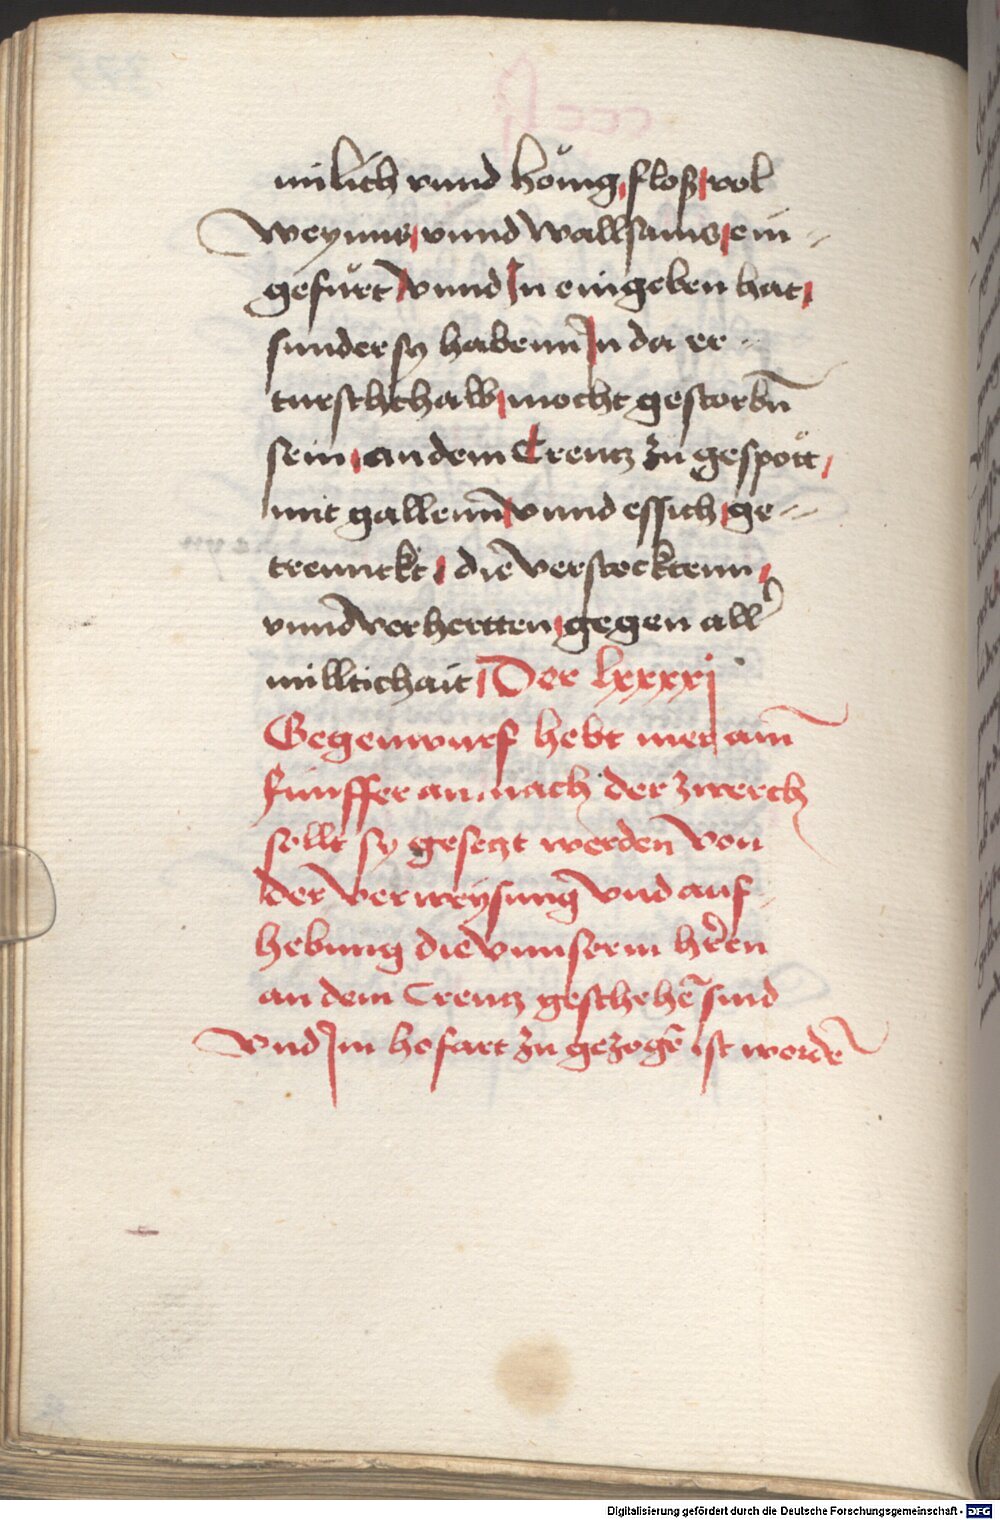 milich vnnd hönig, floss, vol
Weynns, vnnd Wallsams, ein=
gefürt, vnnd In eingeben hat,
sunder sy habenn In da er
turschthalb, mocht gestorbn̄
sein, an dem Creutz zu gespött,
mit gallenn, vnnd essich, ge=
trennckt, die verstocktenn,
vnnd verhertten, gegen all
milltichait, Der lxxxxj
Gegenwurf hebt mer am
funffer an nach der zwerch
sollt sy gesetzt werden von
der verweysung vnd auf=
hebung die vnnserm hr̄en
an dem Creutz geschehē sind
Vnd Im hofart zu gezogē ist wordē
Digitalisierung gefördert durch die Deutsche Forschungsgemeinschaft - DFG